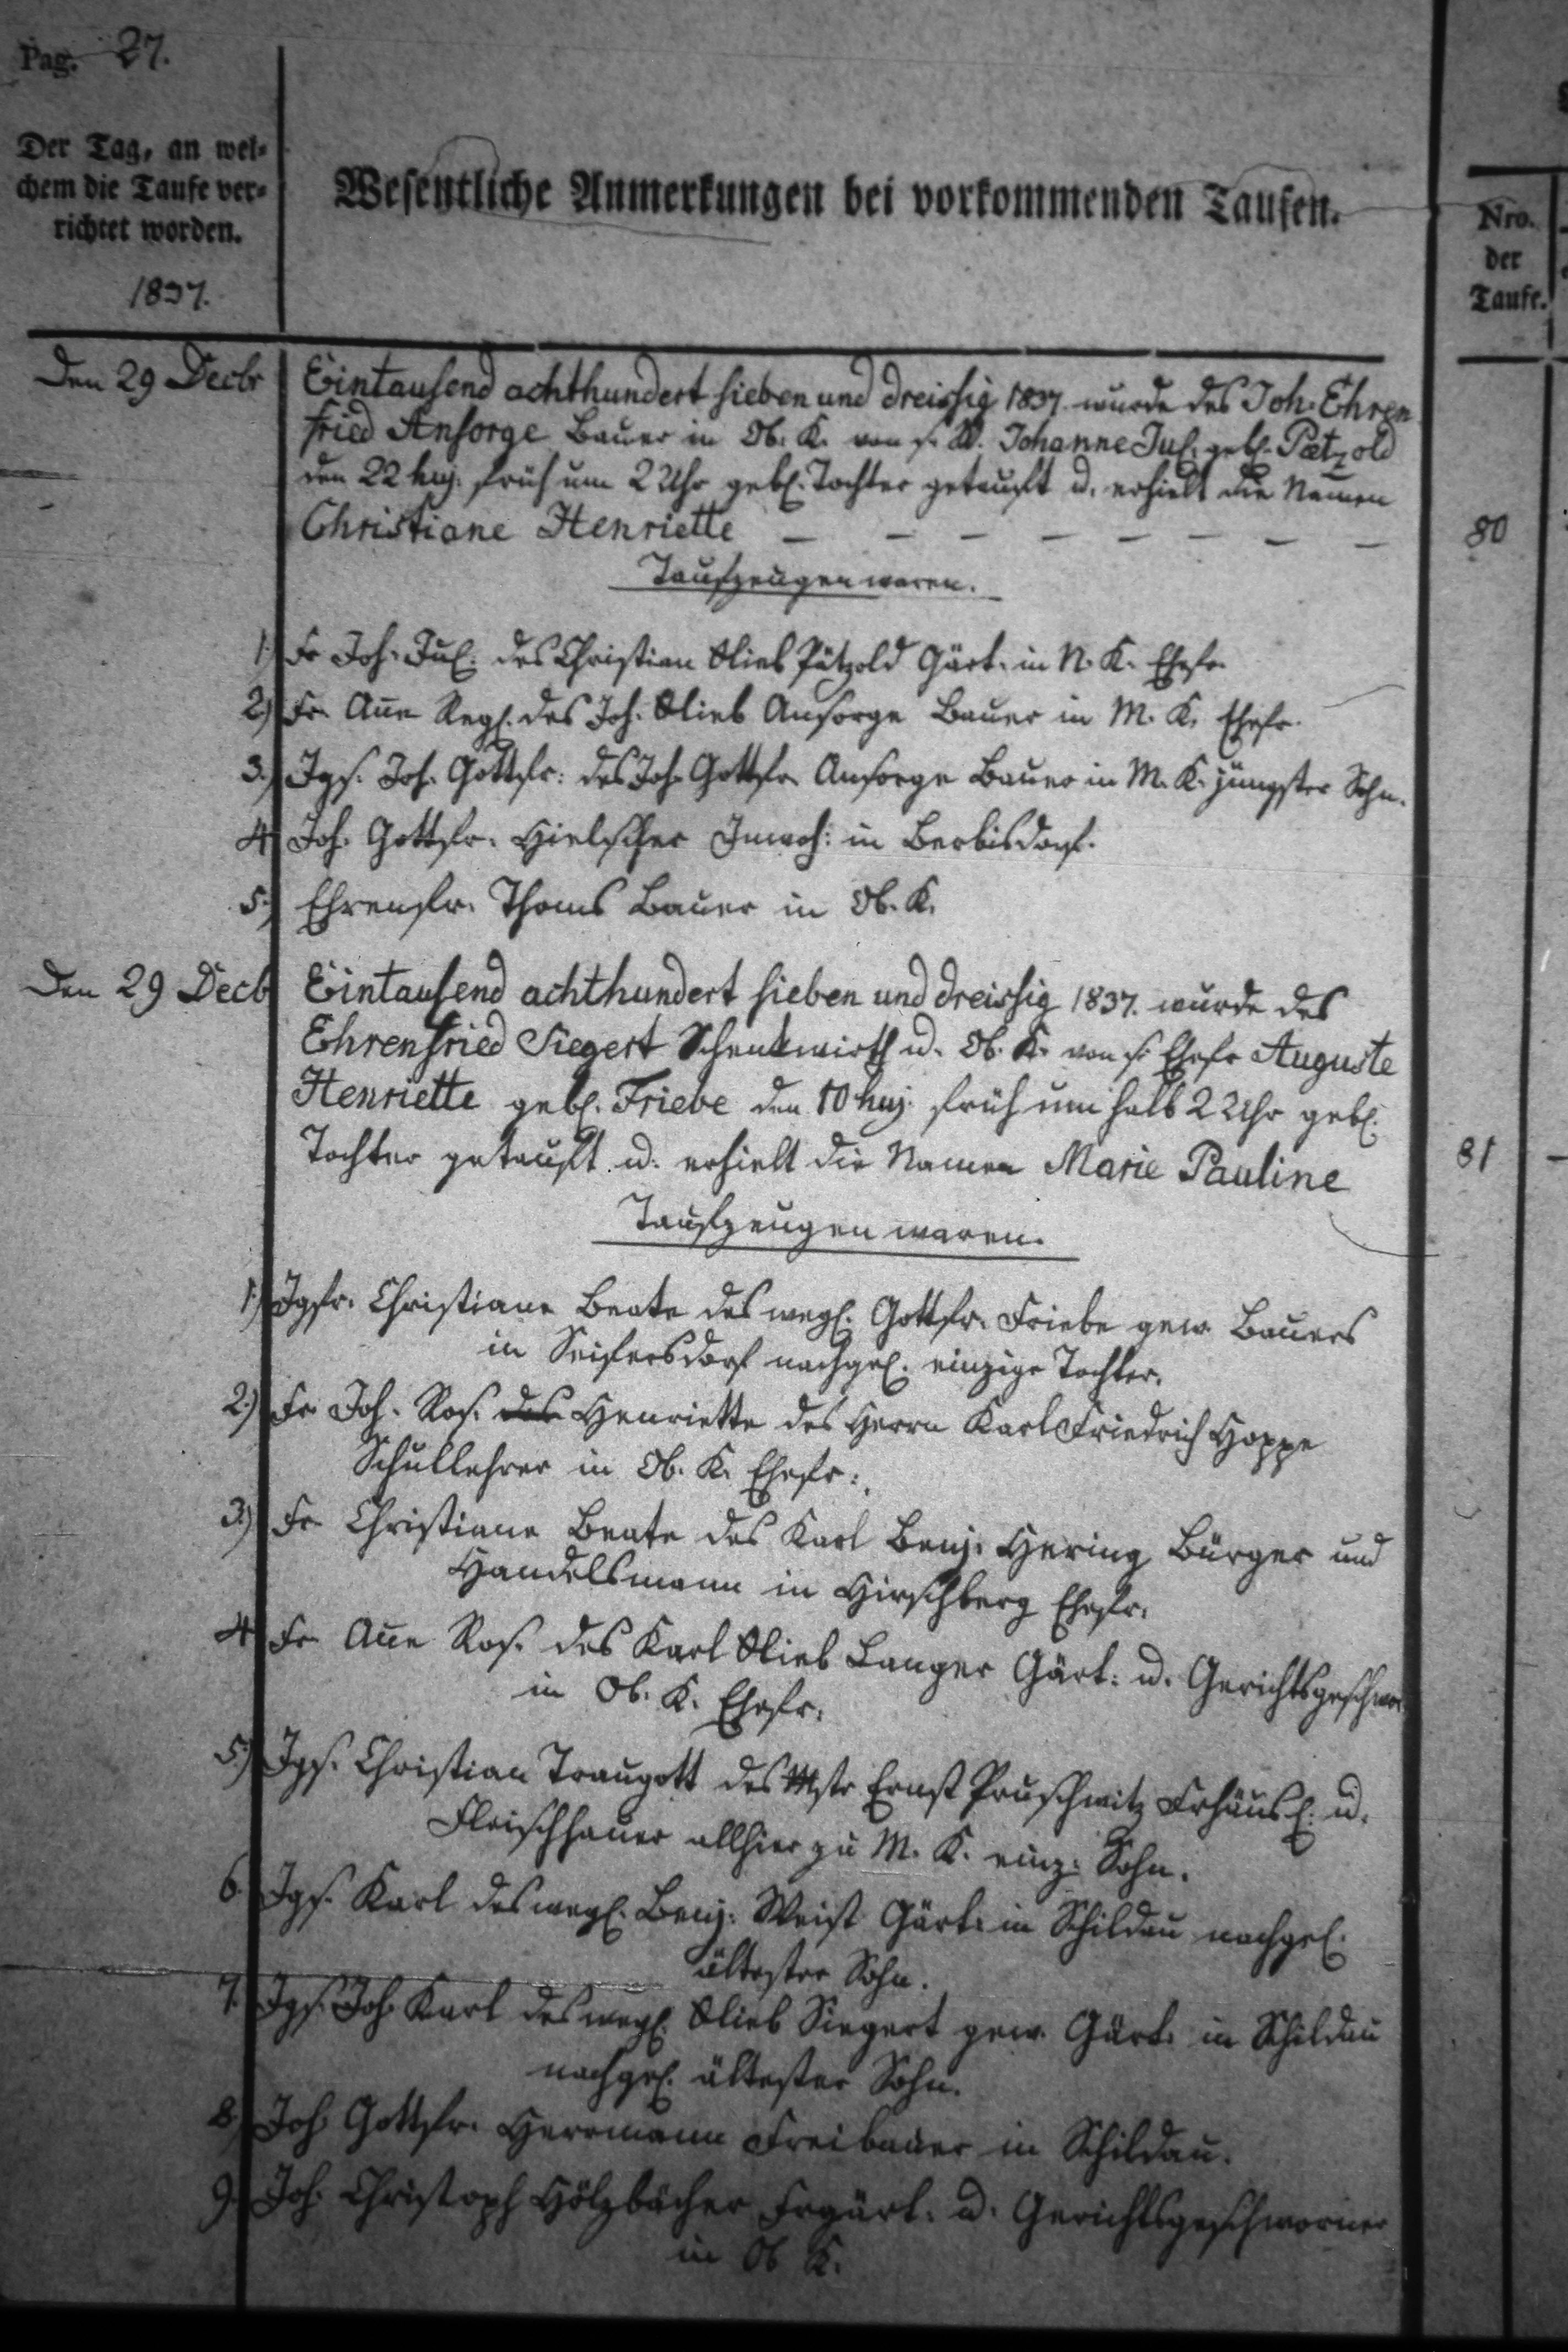 Pag. 27.
Der Tag, an wel-
chem die Taufe ver-
richtet worden.
1837.
Wesentliche Anmerkungen bei vorkommenden Taufen.
Nro.
der
Taufe.
Den 29 Decbr Eintausend achthundert sieben und dreissig 1837. wurde des Joh. Ehren
fried Ansorge Bauer in Ob. K. von s. W. Johanne Jul. geb. Pætzold
den 22 huj. früh um 2 Uhr geb. Tochter getauft u. erhielt die Namen
Christiane Henriette — — — — — — — — 80
Taufzeugen waren.
1.) Fr Joh. Jul. des Christian Glieb Pätzold Gärt. in N. K. Ehefr.
2.) Fr. Añe Reg. des Joh. Glieb Ansorge Bauer in M. K. Ehefr.
3.) Jgs. Joh. Gottfr. des Joh. Gottfr. Ansorge Bauer in M. K. jüngster Sohn.
4 Joh. Gottfr. Hielscher Inwoh: in Berbisdorf.
5.) Ehrenfr. Thoms Bauer in Ob. K.
Den 29 Decb Eintausend achthundert sieben und dreissig 1837. wurde des
Ehrenfried Siegert Schenkwirth u. Ob. K. von s. Ehefr Auguste
Henriette geb. Friebe den 10 huj. früh um halb 2 Uhr geb.
Tochter getauft u. erhielt die Namen Marie Pauline 81
Taufzeugen waren.
1.) Jgfr. Christiane Beate des wegl. Gottfr. Friebe gew. Bauers
in Seifersdorf nachgel. einzige Tochter.
2.) Fr Joh. Ros. des Henriette des Herrn Karl Friedrich Hoppe
Schullehrer in Ob. K. Ehefr:.
3.) Fr. Christiane Beate des Karl Benj. Hering Bürger und
Handelsmann in Hirschberg Ehefr.
4 Fr Añe Ros. des Karl Glieb Langer Gärt: u. Gerichtsgeschwor
in Ob. K. Ehefr.
5.) Jgs. Christian Traugott des Mstr Ernst Pruschwitz Frhäusl. u.
Fleischhauer allhier zu M. K. einz. Sohn.
6. Jgs. Karl des wegl. Benj. Weist Gärt. in Schildau nachgel.
ältester Sohn.
7. Jgs. Joh Karl des wegl. Glieb Siegert gew. Gärt. in Schildau
nachgel. ältester Sohn.
8.) Joh Gottfr. Herrmann Freibauer in Schildau.
9. Joh. Christoph Hölzbächer Frgärt. u. Gerichtsgeschworner
in Ob K.